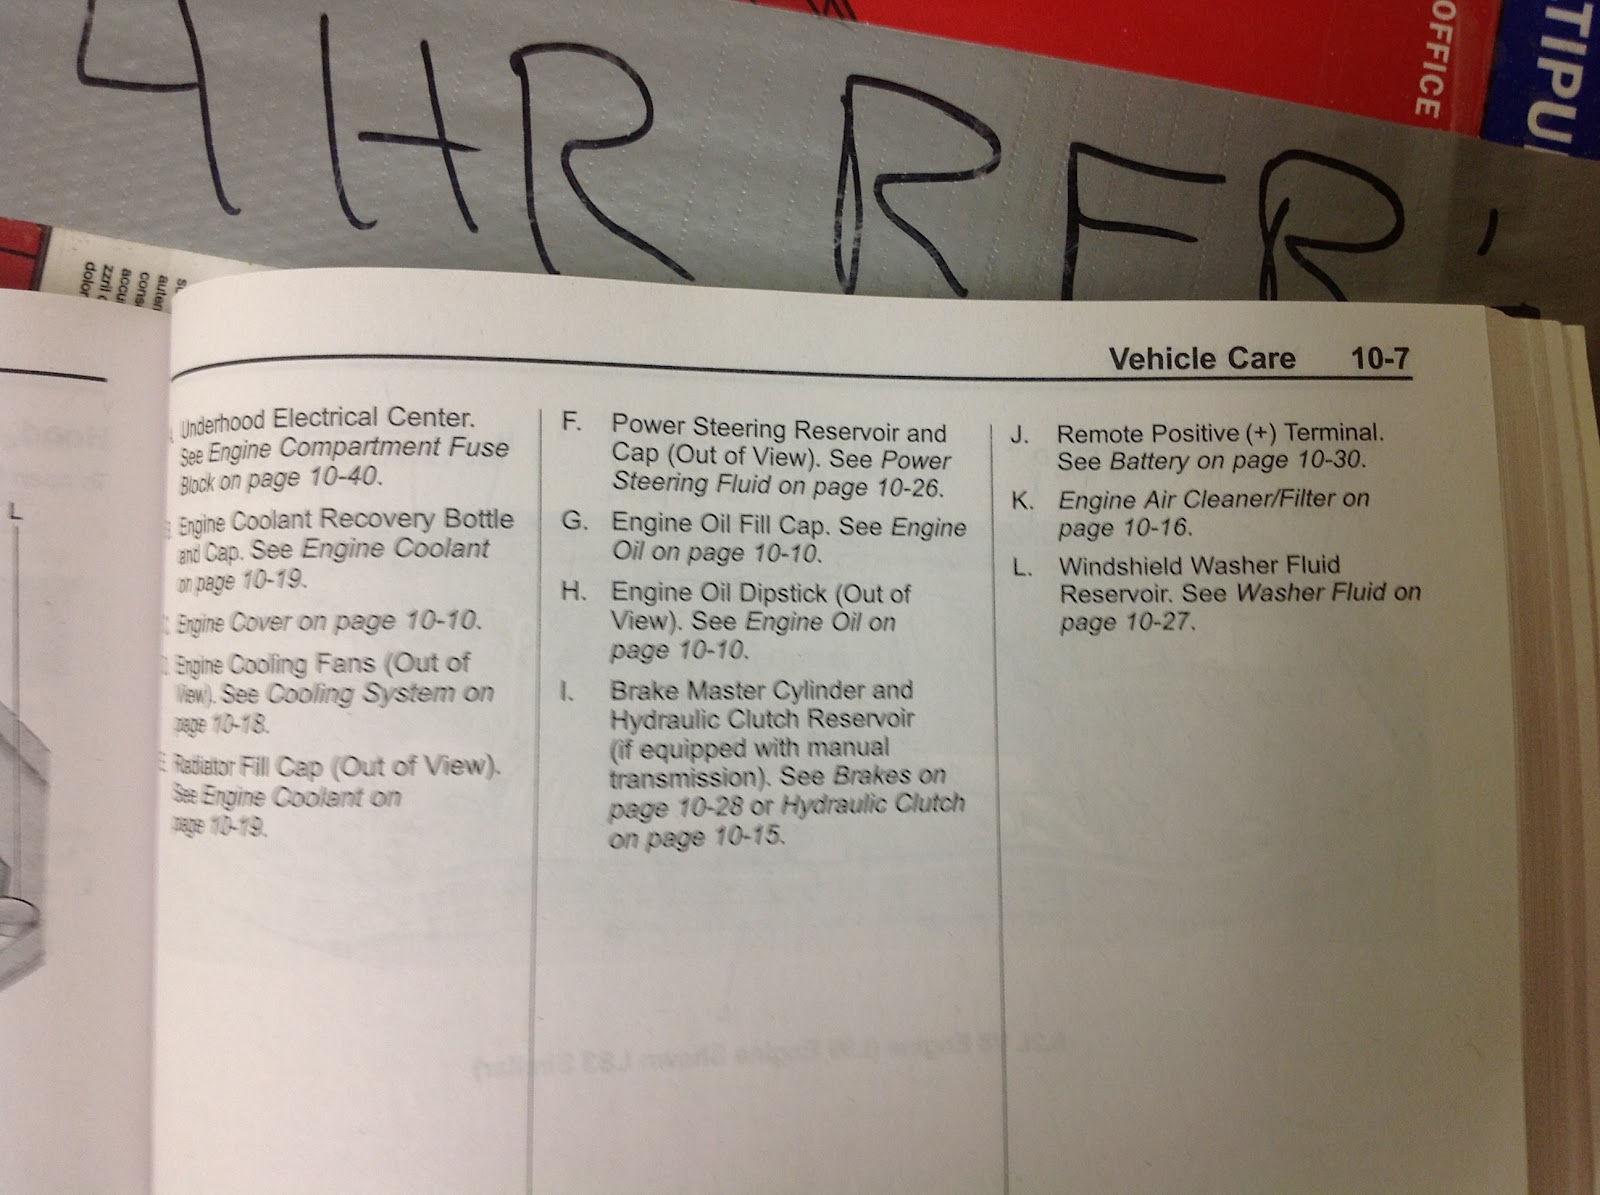 4 HR RFR
OFFICE
TIPU
dolor
zzril
accu
cons
autem
Vehicle Care 10-7
L
Underhood Electrical Center.
See Engine Compartment Fuse
Block on page 10-40.
Engine Coolant Recovery Bottle
and Cap. See Engine Coolant
on page 10-19.
Engine Cover on page 10-10.
Engine Cooling Fans (Out of
View). See Cooling System on
page 10-18.
E. Radiator Fill Cap (Out of View).
See Engine Coolant on
page 10-19.
F. Power Steering Reservoir and
Cap (Out of View). See Power
Steering Fluid on page 10-26.
G. Engine Oil Fill Cap. See Engine
Oil on page 10-10.
H. Engine Oil Dipstick (Out of
View). See Engine Oil on
page 10-10.
I. Brake Master Cylinder and
Hydraulic Clutch Reservoir
(if equipped with manual
transmission). See Brakes on
page 10-28 or Hydraulic Clutch
on page 10-15.
J. Remote Positive (+) Terminal.
See Battery on page 10-30.
K. Engine Air Cleaner/Filter on
page 10-16.
L. Windshield Washer Fluid
Reservoir. See Washer Fluid on
page 10-27.